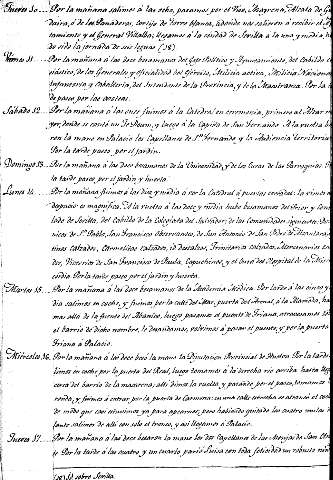 Jueves 10.. Por la mañana salimos a las ocho, pasamos por el Viso, Mayrena, Alcalá de Gua
daira, á de los Panaderos, cortijo de Torre blanca, donde nos salieron á recibir el
tamiento y el General Villalba; llegamos á la ciudad de Sevilla á la una y media, ha
de sido la jornada de seis leguas (18)
Viernes 11.. Por la mañana á las doce besamanos del Gefe Político y Ayuntamiento, del Cabildo
siástico, de los Generales y Oficialidad del Ejército, Milicia activa, Milicia Nacional
Infantería y Caballería, del Intendente de la Provincia, y de la Maestranza. Por la
de paseo por las
Sábado 12.. Por la mañana á las once fuimos á la Catedral en ceremonia, primero al Altar
yor, donde se cantó un Te Deum, y luego á la Capilla de San Fernando. A la vuelta
ron la mano en Palacio la Capellanes de Sn. Fernando y la Audiencia territorial
Por la tarde paseo por el jardín.
Domingo 13.. Por la mañana á las doce besamanos de la Universidad, y de los Curas de las Parroquias.
la tarde paseo por el jardín y huerta.
Lunes 14.. Por la mañana fuimos á las diez y media á ver la Catedral á puertas cerradas: la
después es magnífica. A la vuelta á las doce y media hubo besamanos del Prior, y
lado de Sevilla, del Cabildo de la Colegiata del Salvador, de las Comunidades siguientes
nicos de Sn. Pablo, San Francisco Observantes, de San Antonio, de San Pedro de Alcántara
tinos Calzados, Carmelitas calzados, id descalzos, Trinitarios Calzados, Mercenarios
dos, Victorios de San Francisco de Paula, Capuchinos, y el Cura del Hospital de la Miseri
cordia. Por la tarde paseo por el jardín y huerta.
Martes 15.. Por la mañana á las doce besamanos de la Academia Médica. Por la tarde á las cinco y
dia salimos en coche, y fuimos por la calle del Mar, puerta del Arenal, á la Alameda, ha
mas allá de la fuente del Abanico, luego pasamos el puente de Triana, atravesamos
el barrio de dicho nombre, le anduvimos, volvimos á pasar el puente, y por la puerta
Triana á Palacio.
Miércoles 16.. Por la mañana á las doce besó la mano la Diputacion Provincial de Huelva. Por la tarde
limos en coche por la puerta del Real, luego tomamos á la derecha río arriba hasta
cerca del barrio de la macarena; allí dimos la vuelta, y pasando por el paseo, tomamos
ronda, y fuimos á entrar por la puerta de Carmona: en una calle estrecha se atascó el co
de modo que casi estuvimos ya para apearnos; pero habiendo quitado las cuatro mulas
lante salimos de allí con solo el tronco, y así llegamos á Palacio.
Jueves 17.. Por la mañana á las doce besaron la mano los dos Capellanes de las Monjas de San Cle
Por la tarde á las cuatro, y un cuarto, parió Luisa con toda felicidad un robusto niño
(18) id. sobre Sevilla